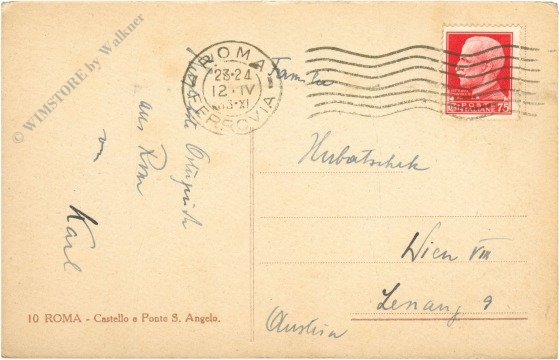 © WIMSTORE by Walkner
ROMA
23-24
12·IV
FERROVIA
POSTE
ITALIANE
75
Familie
Hubatschek
Wien VIII
Lenaug 9
Austria
Ostergrüße
aus Rom
von
Karl
10 ROMA - Castello e Ponte S. Angelo.